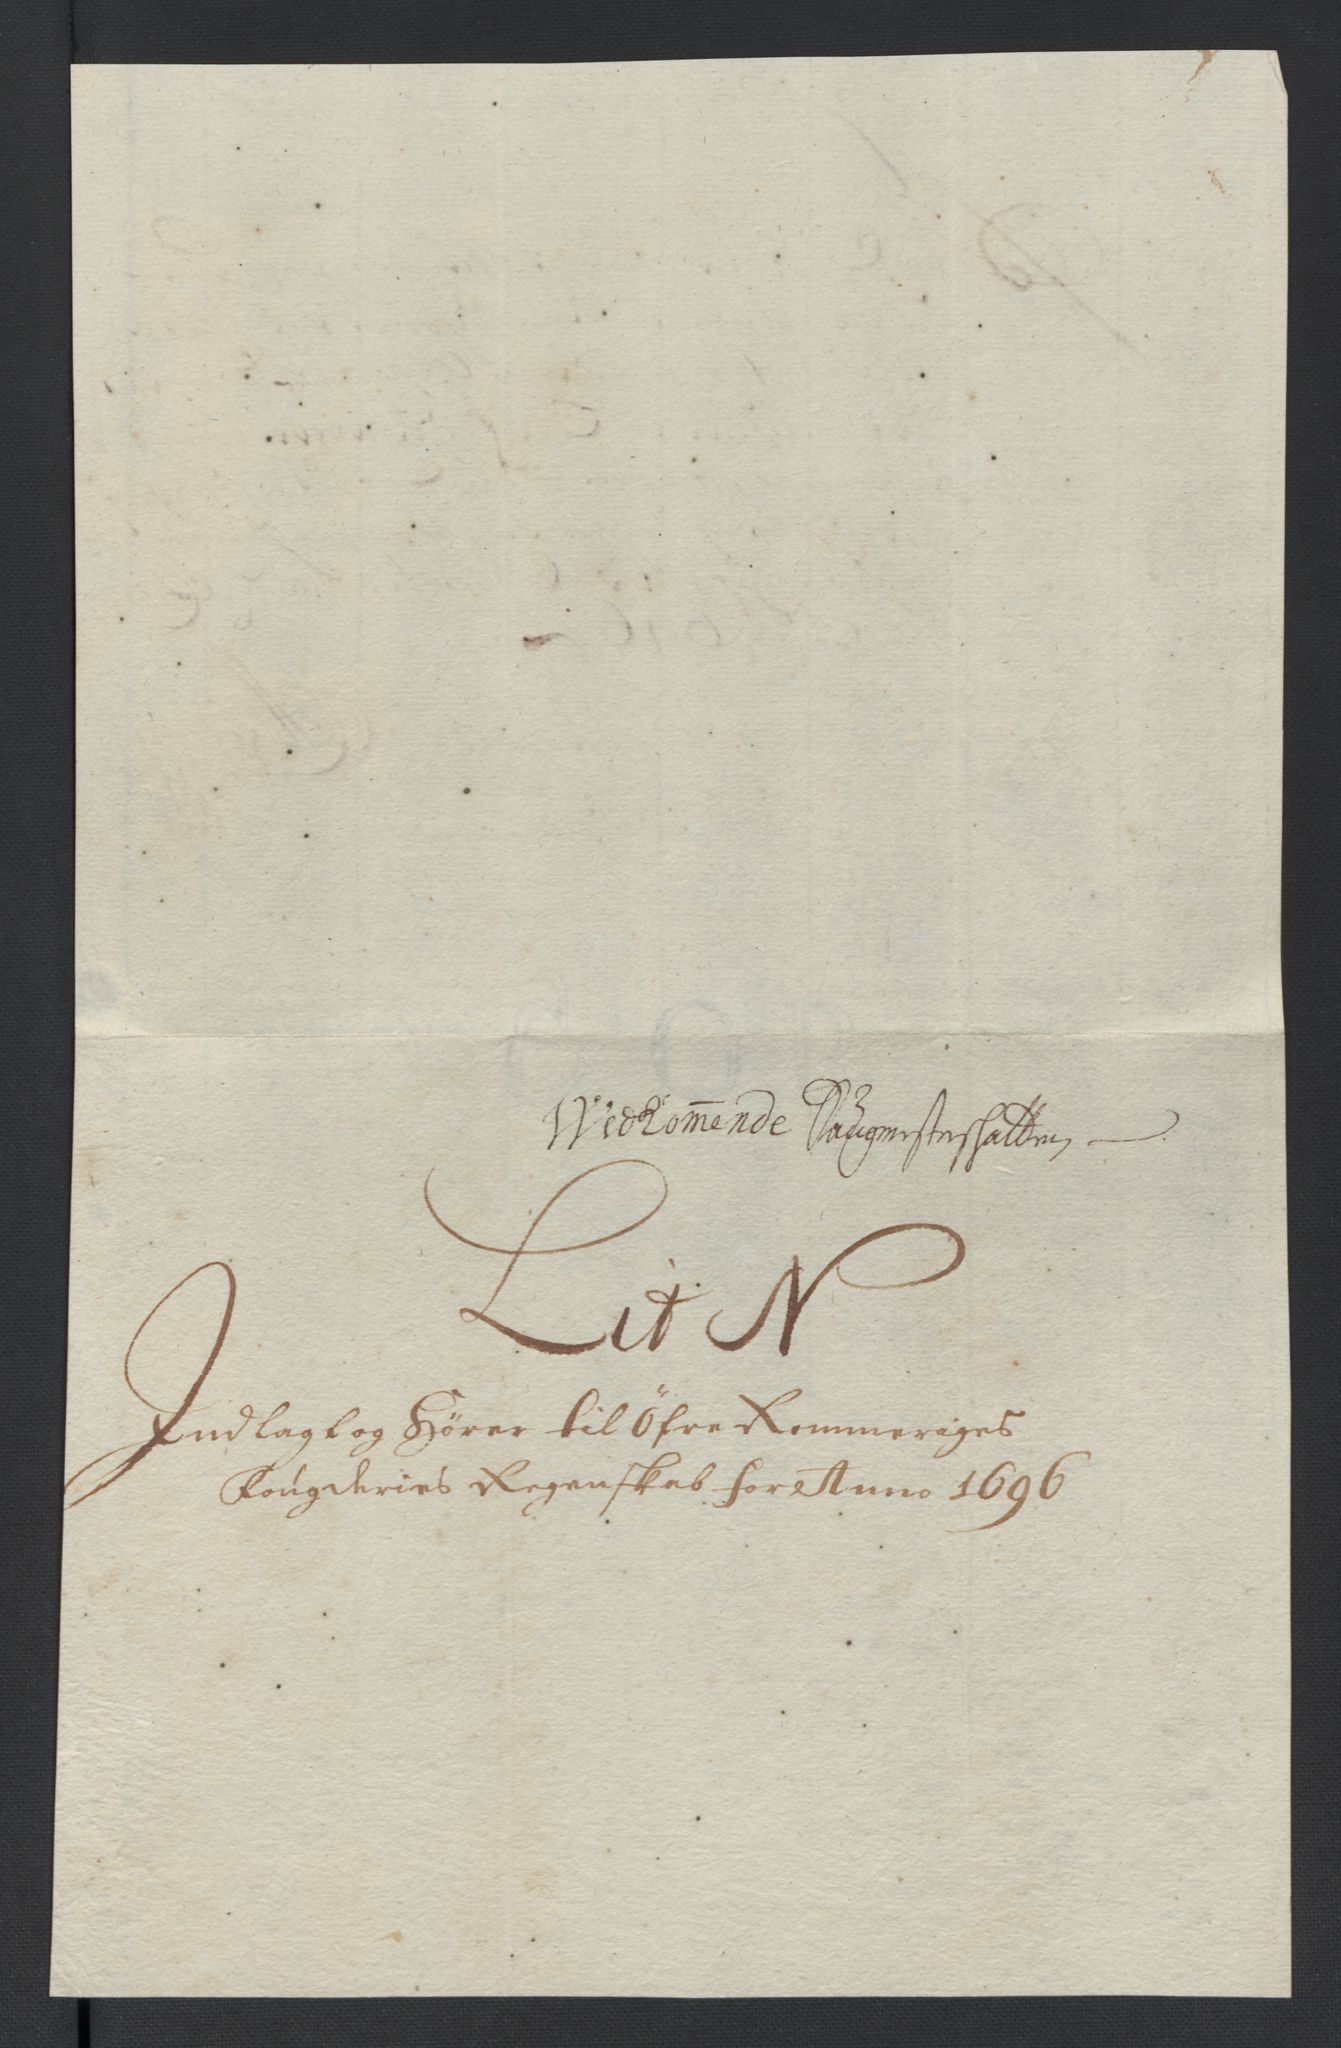 Wedkom̄ende Saugmesterskatten
Lit N
Indlagt og Hörer til Öfre Rommeriges
Fougderies Regenskab for Anno 1696